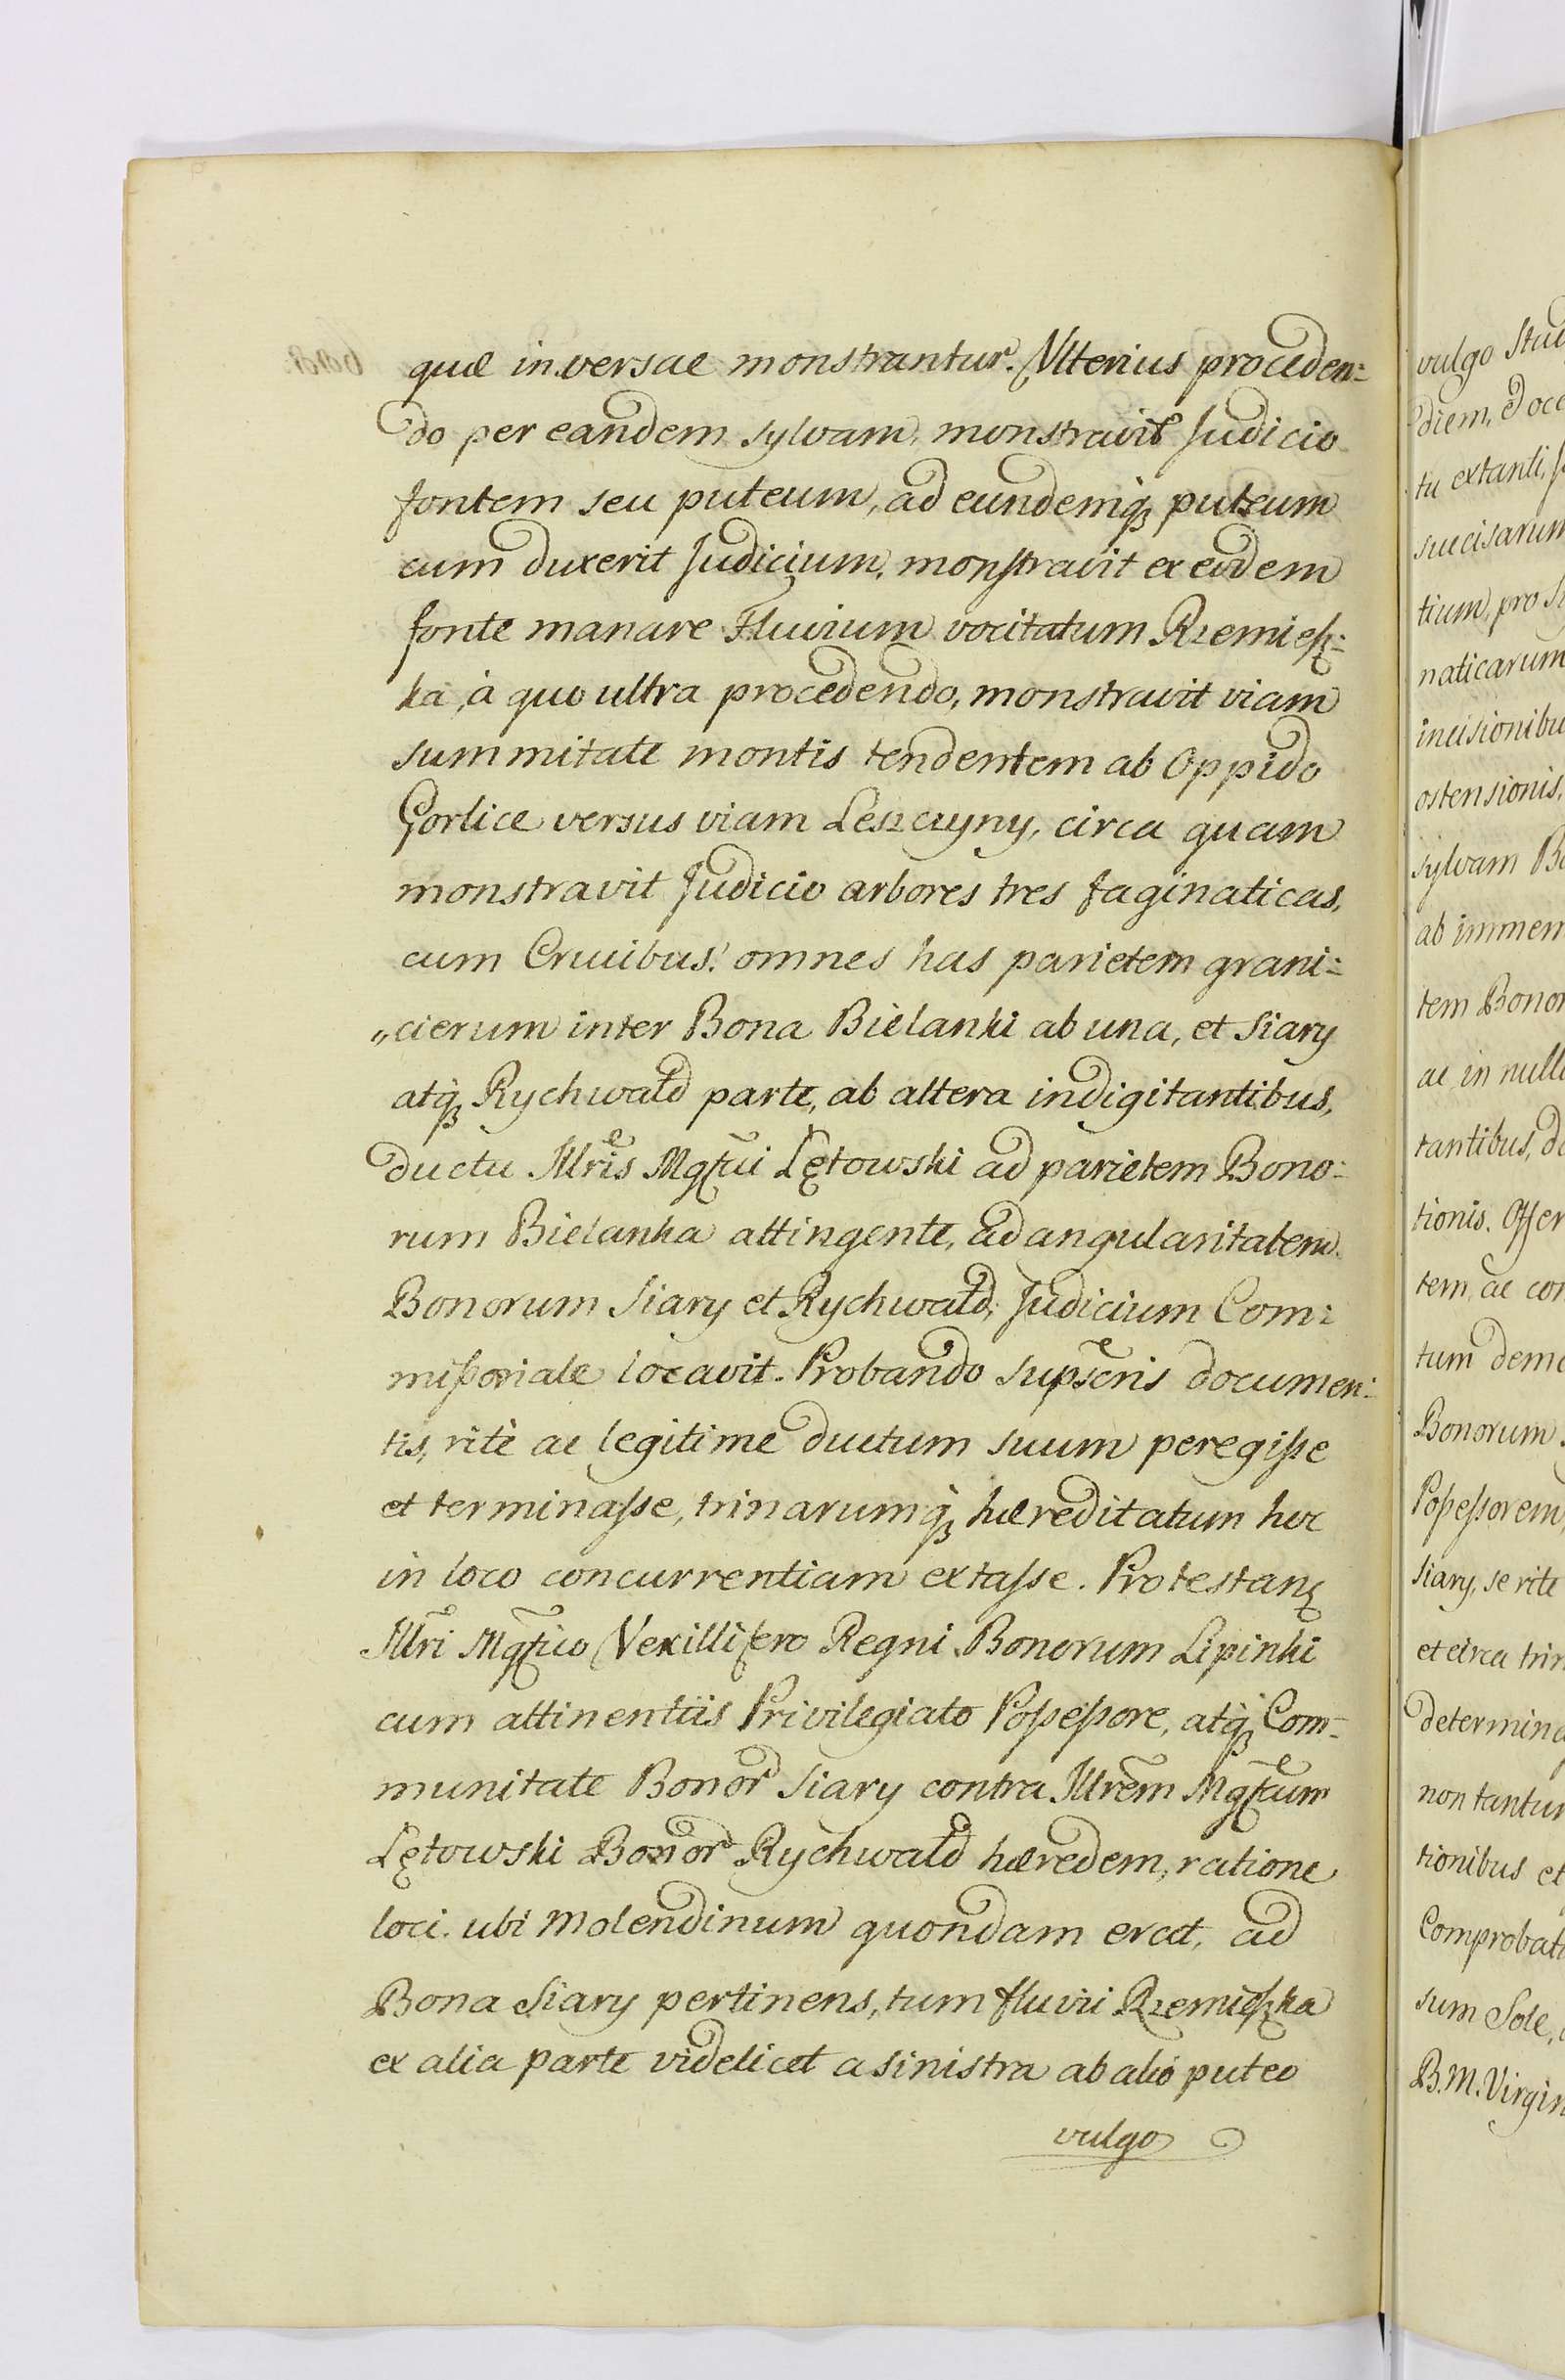 quæ inversae monstrantur. Ulterius proceden=
do per eandem sylvam, monstravit Judicio
fontem seu puteum, ad eundemq; puteum
cum duxerit Judicium, monstravit ex eodem
fonte manare Fluvium vocitatum Rzemiesz=
ka, à quo ultra procedendo, monstravit viam
summitate montis tendentem ab Oppido
Gorlice versus viam Leszczyny, circa quam
monstravit Judicio arbores tres faginaticas,
cum Crucibus: omnes has parietem grani=
„cierum inter Bona Bielanki ab una, et Siary
atq; Rychwałd parte, ab altera indigitantibus,
ductu Illris Mgfici Lętowski ad parietem Bono=
rum Bielanka attingente, ad angularitatem
Bonorum Siary et Rychwałd, Judicium Com=
missoriale locavit. Probando supscris documen=
tis, ritè ac legitime ductum suum peregisse
et terminasse, trinarumq; hæreditatum hoc
in loco concurrentiam extasse. Protestan
Illri Mgfico Vexillifero Regni Bonorum Lipinki
cum attinentiis Privilegiato Possessore, atq; Com=
munitate Bonor Siary contra Illrem Mgficum
Lętowski Bonor Rychwałd hæredem, ratione
loci ubi Molendinum quondam erat, ad
Bona Siary pertinens, tum fluvii Rzemieszka
ex alia parte videlicet a sinistra ab alio puteo
vulgo
vulgo
diem,
tu extanti,
succisarum
tium, pro
naticarum
incisionibu
ostensionis,
sylvam
ab immem
tem Bonor
ac in null
tantibus,
tionis. Offer
tem ac con
tum
Bonorum
Possessorem
Siary, se rite
et circa trin
determina
non tantum
tionibus et
Comprobat
sum Sole,
B. M. Virgin